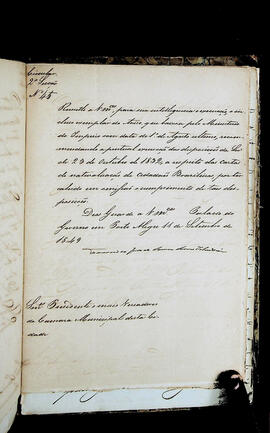 Circular
2ª Secção
Nº 45
Remetto a Vmces para sua intelligencia e execução, o in
cluso exemplar do Aviso, que baixou pelo Ministerio
do Imperio com data de 1º de Agosto ultimo, recom-
mendando a pontual execução das disposições da Lei
de 23 de Outubro de 1832, a respeito das cartas
de naturalisação de Cidadãos Brasileiros,
cumprimento de tais dis-
posições.
Deos Guarde a Vmces Palacio do
Governo em Porto Alegre 11 de Setembro de
1849
Senres Presidente e mais Vereadores
da Camara Municipal desta Ci
dade